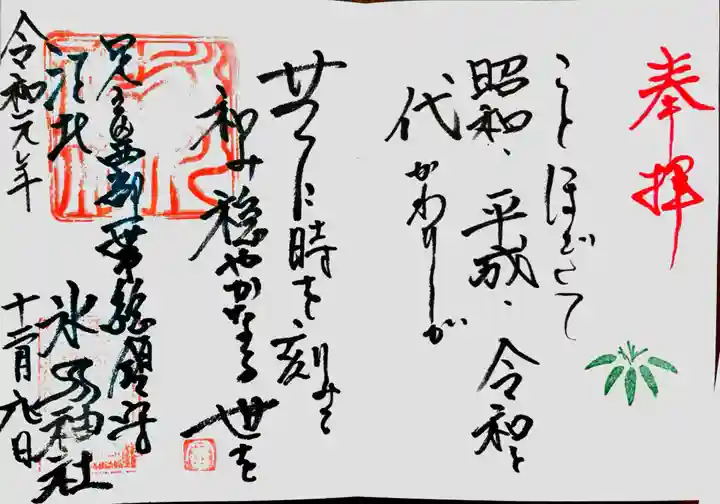 奉拝
ことほぎて
昭和、平成、令和と
代かわりしが
に時を刻みて
和み穏やかなる世を
西部一帯総鎮守
江北 氷川神社
令和元年 十二月九日